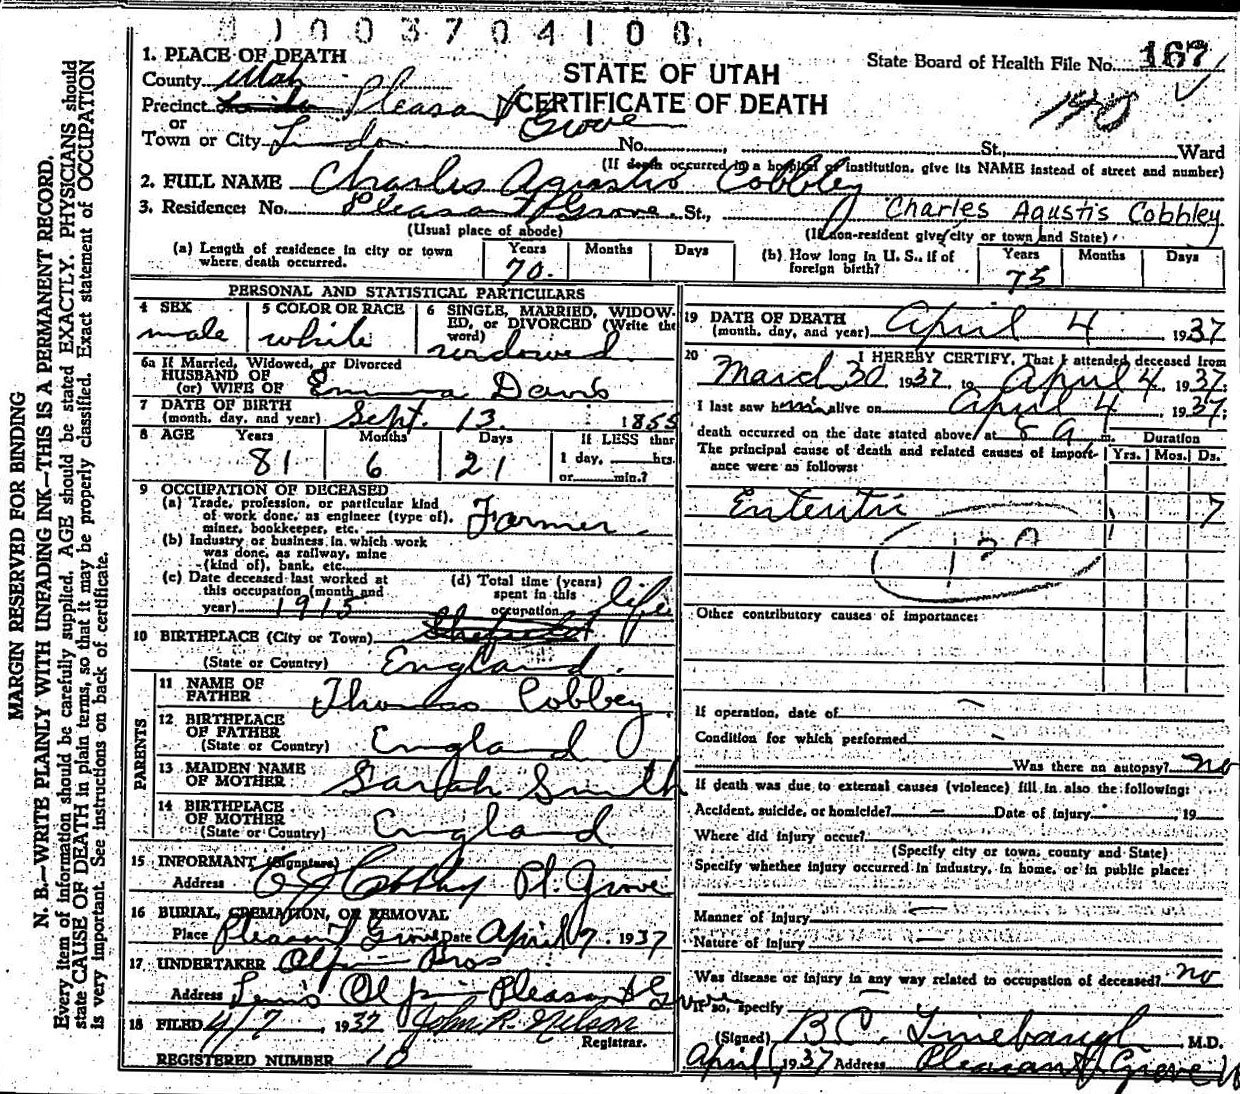 1003704108
1. PLACE OF DEATH
County Utah
STATE OF UTAH
CERTIFICATE OF DEATH
State Board of Health File No. 167
Precinct Pleasant Grove
or
Town or City Lindon No. St., Ward
(If death occurred in a hospital or institution, give its NAME instead of street and number)
2. FULL NAME Charles Agustis Cobbley
3. Residence: No. Pleasant Grove St., Charles Agustis Cobbley
(Usual place of abode) (If non-resident give city or town and State)
(a) Length of residence in city or town where death occurred. Years 70. Months Days
(b) How long in U. S., if of foreign birth? Years 75 Months Days
PERSONAL AND STATISTICAL PARTICULARS
4 SEX male
5 COLOR OR RACE white
6 SINGLE, MARRIED, WIDOWED, or DIVORCED (Write the word) widowed
6a If Married, Widowed, or Divorced
HUSBAND OF
(or) WIFE OF Emma Davis
7 DATE OF BIRTH
(month, day, and year) Sept. 13. 1855
8 AGE Years 81 Months 6 Days 21 If LESS than 1 day, hrs. or min.?
9 OCCUPATION OF DECEASED
(a) Trade, profession, or particular kind of work done, as engineer (type of), miner, bookkeeper, etc. Farmer
(b) Industry or business in which work was done, as railway, mine (kind of), bank, etc.
(c) Date deceased last worked at this occupation (month and year) 1915
(d) Total time (years) spent in this occupation life
10 BIRTHPLACE (City or Town)
(State or Country) England.
PARENTS
11 NAME OF FATHER Thomas Cobbley
12 BIRTHPLACE OF FATHER
(State or Country) England
13 MAIDEN NAME OF MOTHER Sarah Smith
14 BIRTHPLACE OF MOTHER
(State or Country) England
15 INFORMANT (Signature) Cobbley
Address Pl. Grove
16 BURIAL, CREMATION, OR REMOVAL
Place Pleasant Grove Date April 7. 1937
17 UNDERTAKER Olpin Bros
Address Olpin Pleasant Grove
18 FILED 4/7, 1937 John R. Nelson
Registrar.
REGISTERED NUMBER 10
19 DATE OF DEATH
(month, day, and year) April 4 1937
20 I HEREBY CERTIFY, That I attended deceased from
March 30 1937 to April 4, 1937;
I last saw him alive on April 4 1937;
death occurred on the date stated above, at 8 a. m. Duration
The principal cause of death and related causes of importance were as follows: Yrs. Mos. Ds.
7
Other contributory causes of importance:
If operation, date of —
Condition for which performed —
Was there an autopsy? no
If death was due to external causes (violence) fill in also the following:
Accident, suicide, or homicide? — Date of injury , 19
Where did injury occur?
(Specify city or town, county and State)
Specify whether injury occurred in industry, in home, or in public place:
Manner of injury —
Nature of injury —
Was disease or injury in any way related to occupation of deceased? no
If so, specify
(Signed) B C. Linebaugh M.D.
April 1937 Address Pleasant Grove
MARGIN RESERVED FOR BINDING
N. B.—WRITE PLAINLY WITH UNFADING INK—THIS IS A PERMANENT RECORD.
Every item of information should be carefully supplied. AGE should be stated EXACTLY. PHYSICIANS should
state CAUSE OF DEATH in plain terms, so that it may be properly classified. Exact statement of OCCUPATION
is very important. See instructions on back of certificate.